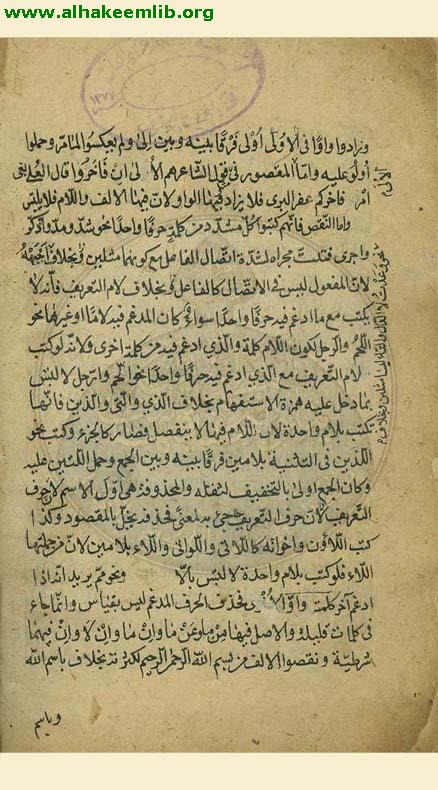 www.alhakeemlib.org
وزادوا واوا فى الاولى أولى فرقا بينه وبين الى ولم يعكسوا لما مر وحملوا
أولو عليه واما المقصور فى قول الشاعر هم الأولى ان فاخروا قال العلى بفى
امرء فاخركم عفر البرى فلا يزاد فيها الواو لانه فيها الالف واللام فلا يلتبس
واما النقص فانهم كتبوا كل مشدد من كلمة حرفا واحدا نحو شد ومد وادكر
واجرى فتت مجراه لشدة اتصال الفاعل مع كونهما مثلين بخلاف اجبهه
لان المفعول ليس فى الاتصال كالفاعل وبخلاف لام التعريف فانه لا
يكتب مع ما ادغم فيه حرفا واحدا سواء كان المدغم فيه لاما او غيرها نحو
اللحم والرجل لكون اللام كلمة والذى ادغم فيه من كلمة اخرى ولانه لو كتب
لام التعريف مع الذى ادغم فيه حرفا واحدا نحو الحم وارجل لالتبس
بما دخل عليه همزة الاستفهام بخلاف الذى والتى والذين فانها
يكتب بلام واحدة لان اللام فيها لا ينفصل فصار كالجزء وكتب نحو
اللذين فى التثنية بلامين فرقا بينه وبين الجمع وحمل اللتين عليه
وكان الجمع اولى بالتخفيف لثقله والمحذوفة هى أول الاسم لا حرف
التعريف لان حرف التعريف جئ به لمعنى فحذفه يخل بالمقصود وكذا
كتب اللاؤن واخواته كاللاتى واللواتى واللاء بلامين لان من جملتها
اللاء فلو كتب بلام واحدة لالتبس بألا ونحو عم يريد انه اذا
ادغم آخر كلمة واول الاخرى فحذف الحرف المدغم ليس بقياس وانما جاء
فى كلمات قليلة والاصل فيها من ما وعن ما وان ما وان لا وان فيهما
شرطية ونقصوا الالف من بسم الله الرحمن الرحيم لكثرته بخلاف باسم الله
وباسم